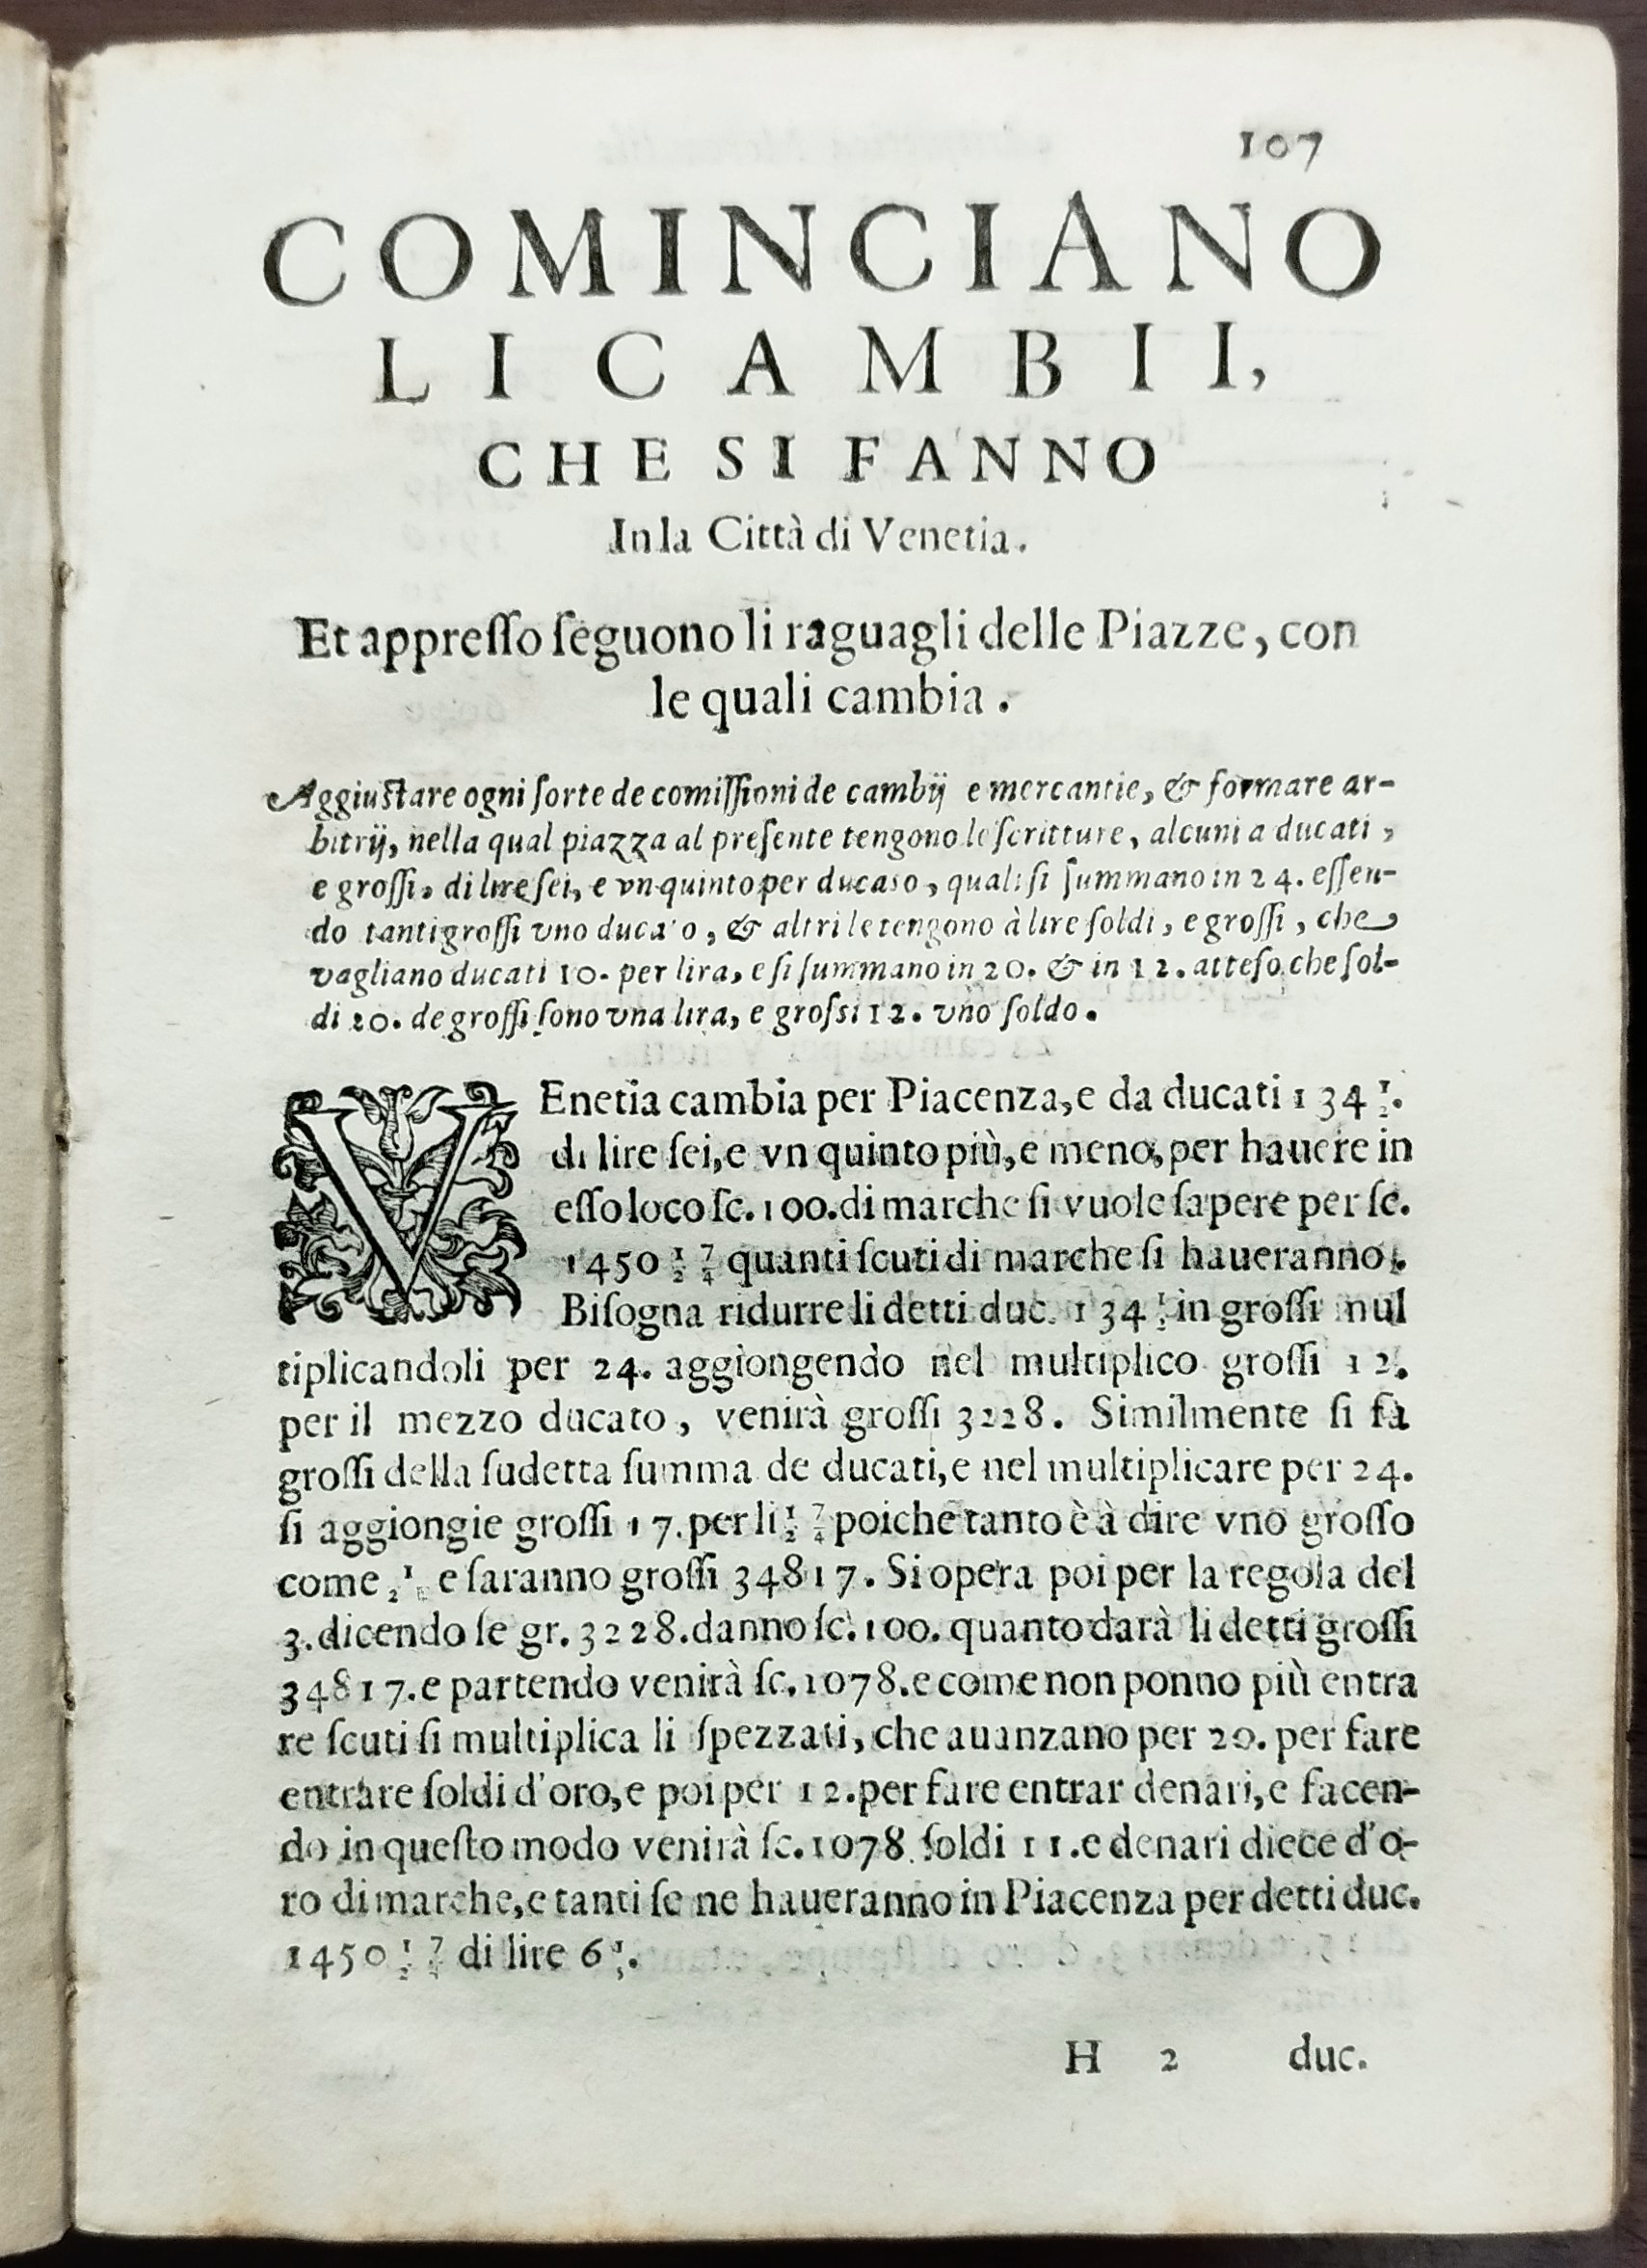 107
COMINCIANO
LI CAMBII,
CHE SI FANNO
In la Città di Venetia.
Et appreſſo ſeguono li raguagli delle Piazze, con
le quali cambia.
Aggiuſtare ogni ſorte de comiſſioni de cambij e mercantie, & formare ar-
bitrij, nella qual piazza al preſente tengono le ſcritture, alcuni a ducati,
e groſſi, di lire ſei, e vn quinto per ducaso, quali ſi ſummano in 24. eſſen-
do tanti groſſi vno ducato, & altri le tengono à lire ſoldi, e groſſi, che
vagliano ducati 10. per lira, e ſi ſummano in 20. & in 12. atteſo che ſol-
di 20. de groſſi ſono vna lira, e groſsi 12. vno ſoldo.
VEnetia cambia per Piacenza, e da ducati 134 1/2.
di lire ſei, e vn quinto più, e meno, per hauere in
eſſo loco ſc. 100. di marche ſi vuole ſapere per ſc.
1450 1/2 7/4 quanti ſcuti di marche ſi haueranno.
Biſogna ridurre li detti duc. 134 1/2 in groſſi mul
tiplicandoli per 24. aggiongendo nel multiplico groſſi 12.
per il mezzo ducato, venirà groſſi 3228. Similmente ſi fà
groſſi della ſudetta ſumma de ducati, e nel multiplicare per 24.
ſi aggiongie groſſi 17. per li 1/2 7/4 poiche tanto è à dire vno groſſo
come e ſaranno groſſi 34817. Si opera poi per la regola del
3. dicendo ſe gr. 3228. danno ſc. 100. quanto darà li detti groſſi
34817. e partendo venirà ſc. 1078. e come non ponno più entra
re ſcuti ſi multiplica li ſpezzati, che auanzano per 20. per fare
entrare ſoldi d'oro, e poi per 12. per fare entrar denari, e facen-
do in queſto modo venirà ſc. 1078 ſoldi 11. e denari diece d'o-
ro di marche, e tanti ſe ne haueranno in Piacenza per detti duc.
1450 1/2 7/4 di lire 6 1/5.
H 2 duc.